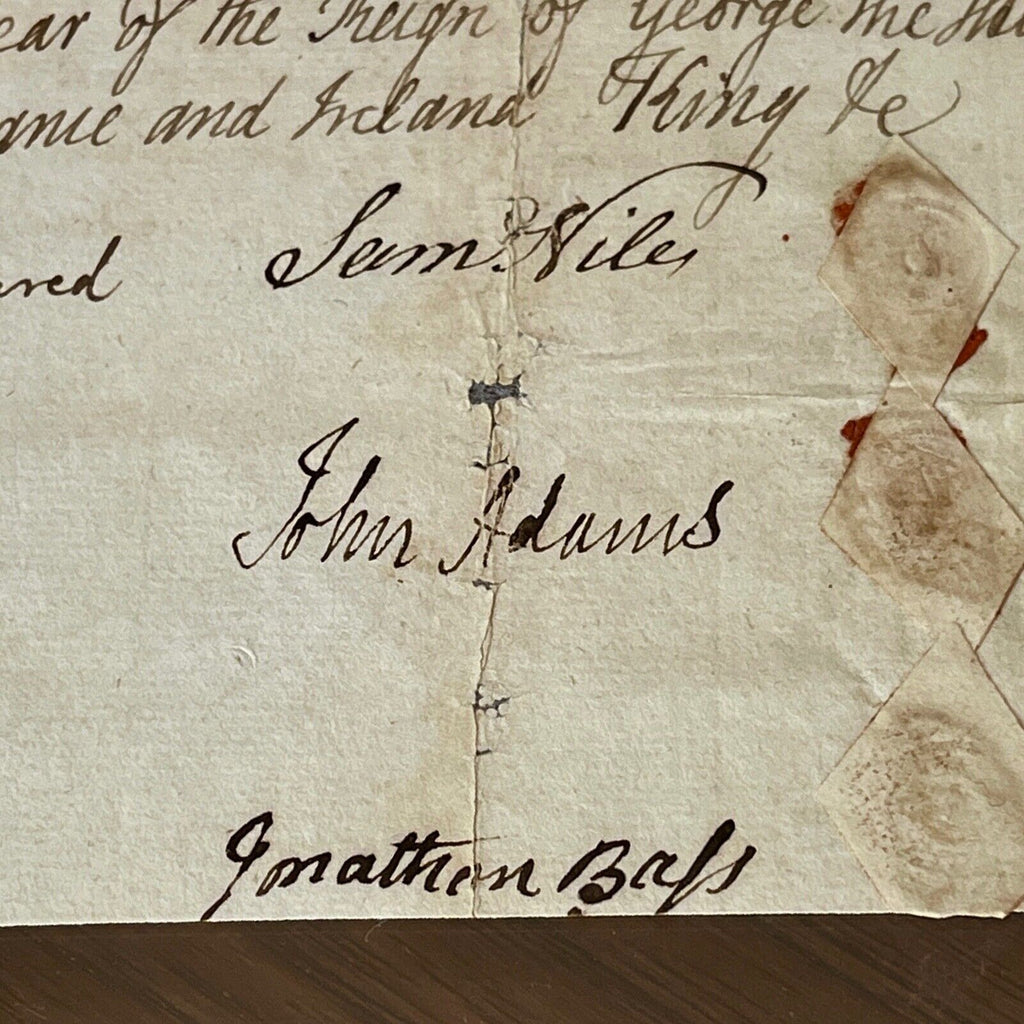 ear of the Reign of George the
and Ireland King &c
Sam.ll Niles
ered
John Adams
Jonathan Baſs